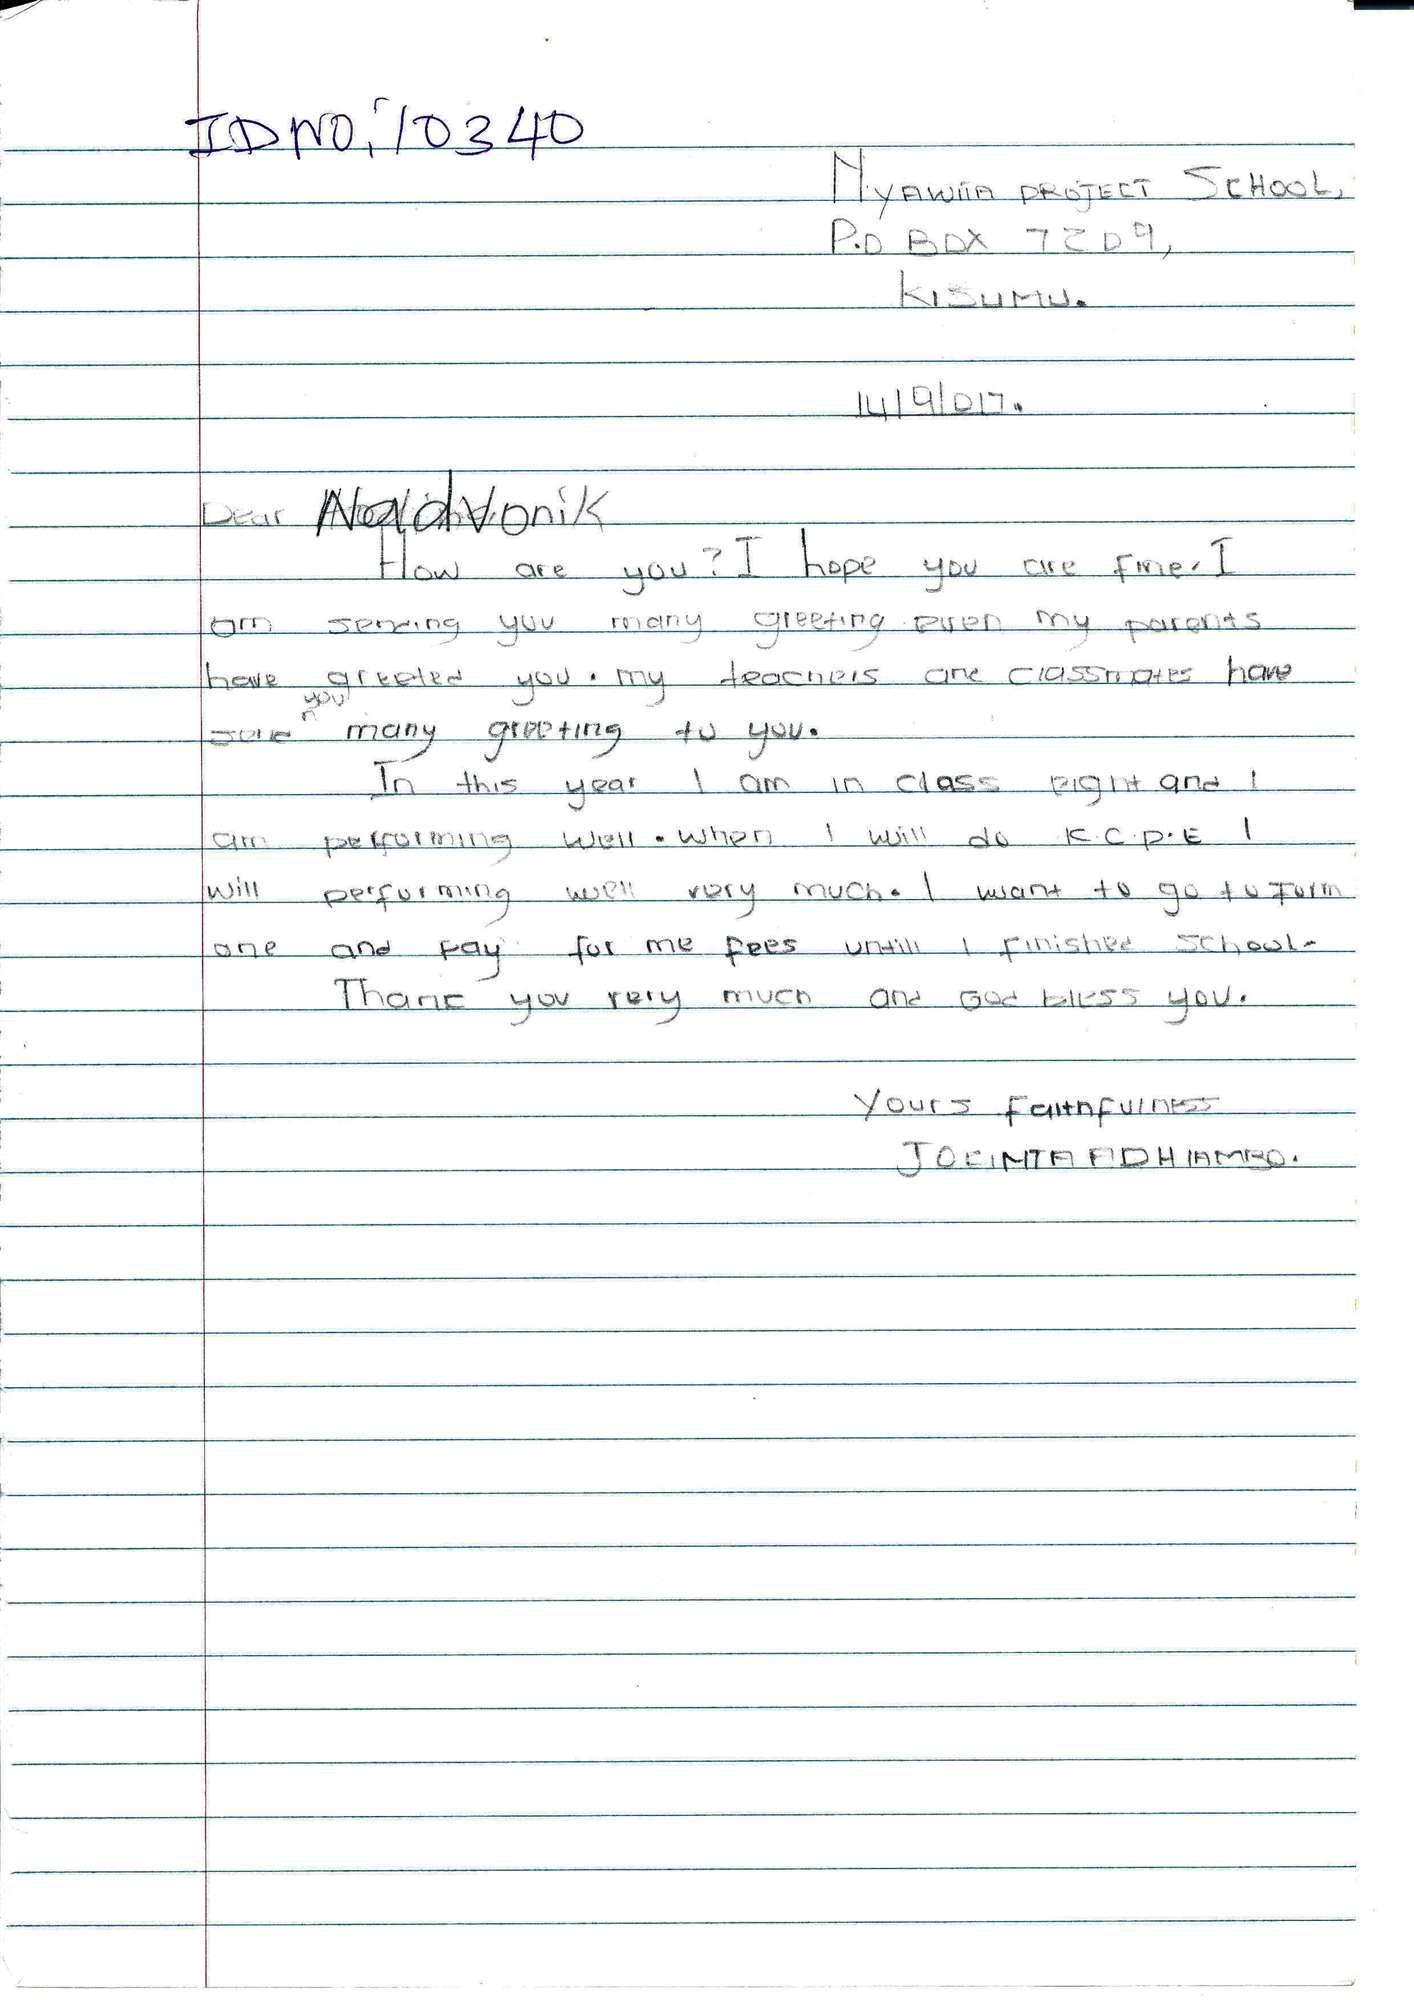 ID NO: 10340
NYAWITA PROJECT SCHOOL,
P.O BOX 7209,
KISUMU.
14/9/017.
Dear Nadvonik
How are you? I hope you are fine. I
am sending you many greeting even my parents
have greeted you. my teachers and classmates have
you
send many greeting to you.
In this year I am in class eight and I
am performing well. when I will do K.C.P.E I
will performing well very much. I want to go to Form
one and pay for me fees untill I finished school.
Thank you very much and God bless you.
Yours faithfulness
JOCINTA ADHIAMBO.